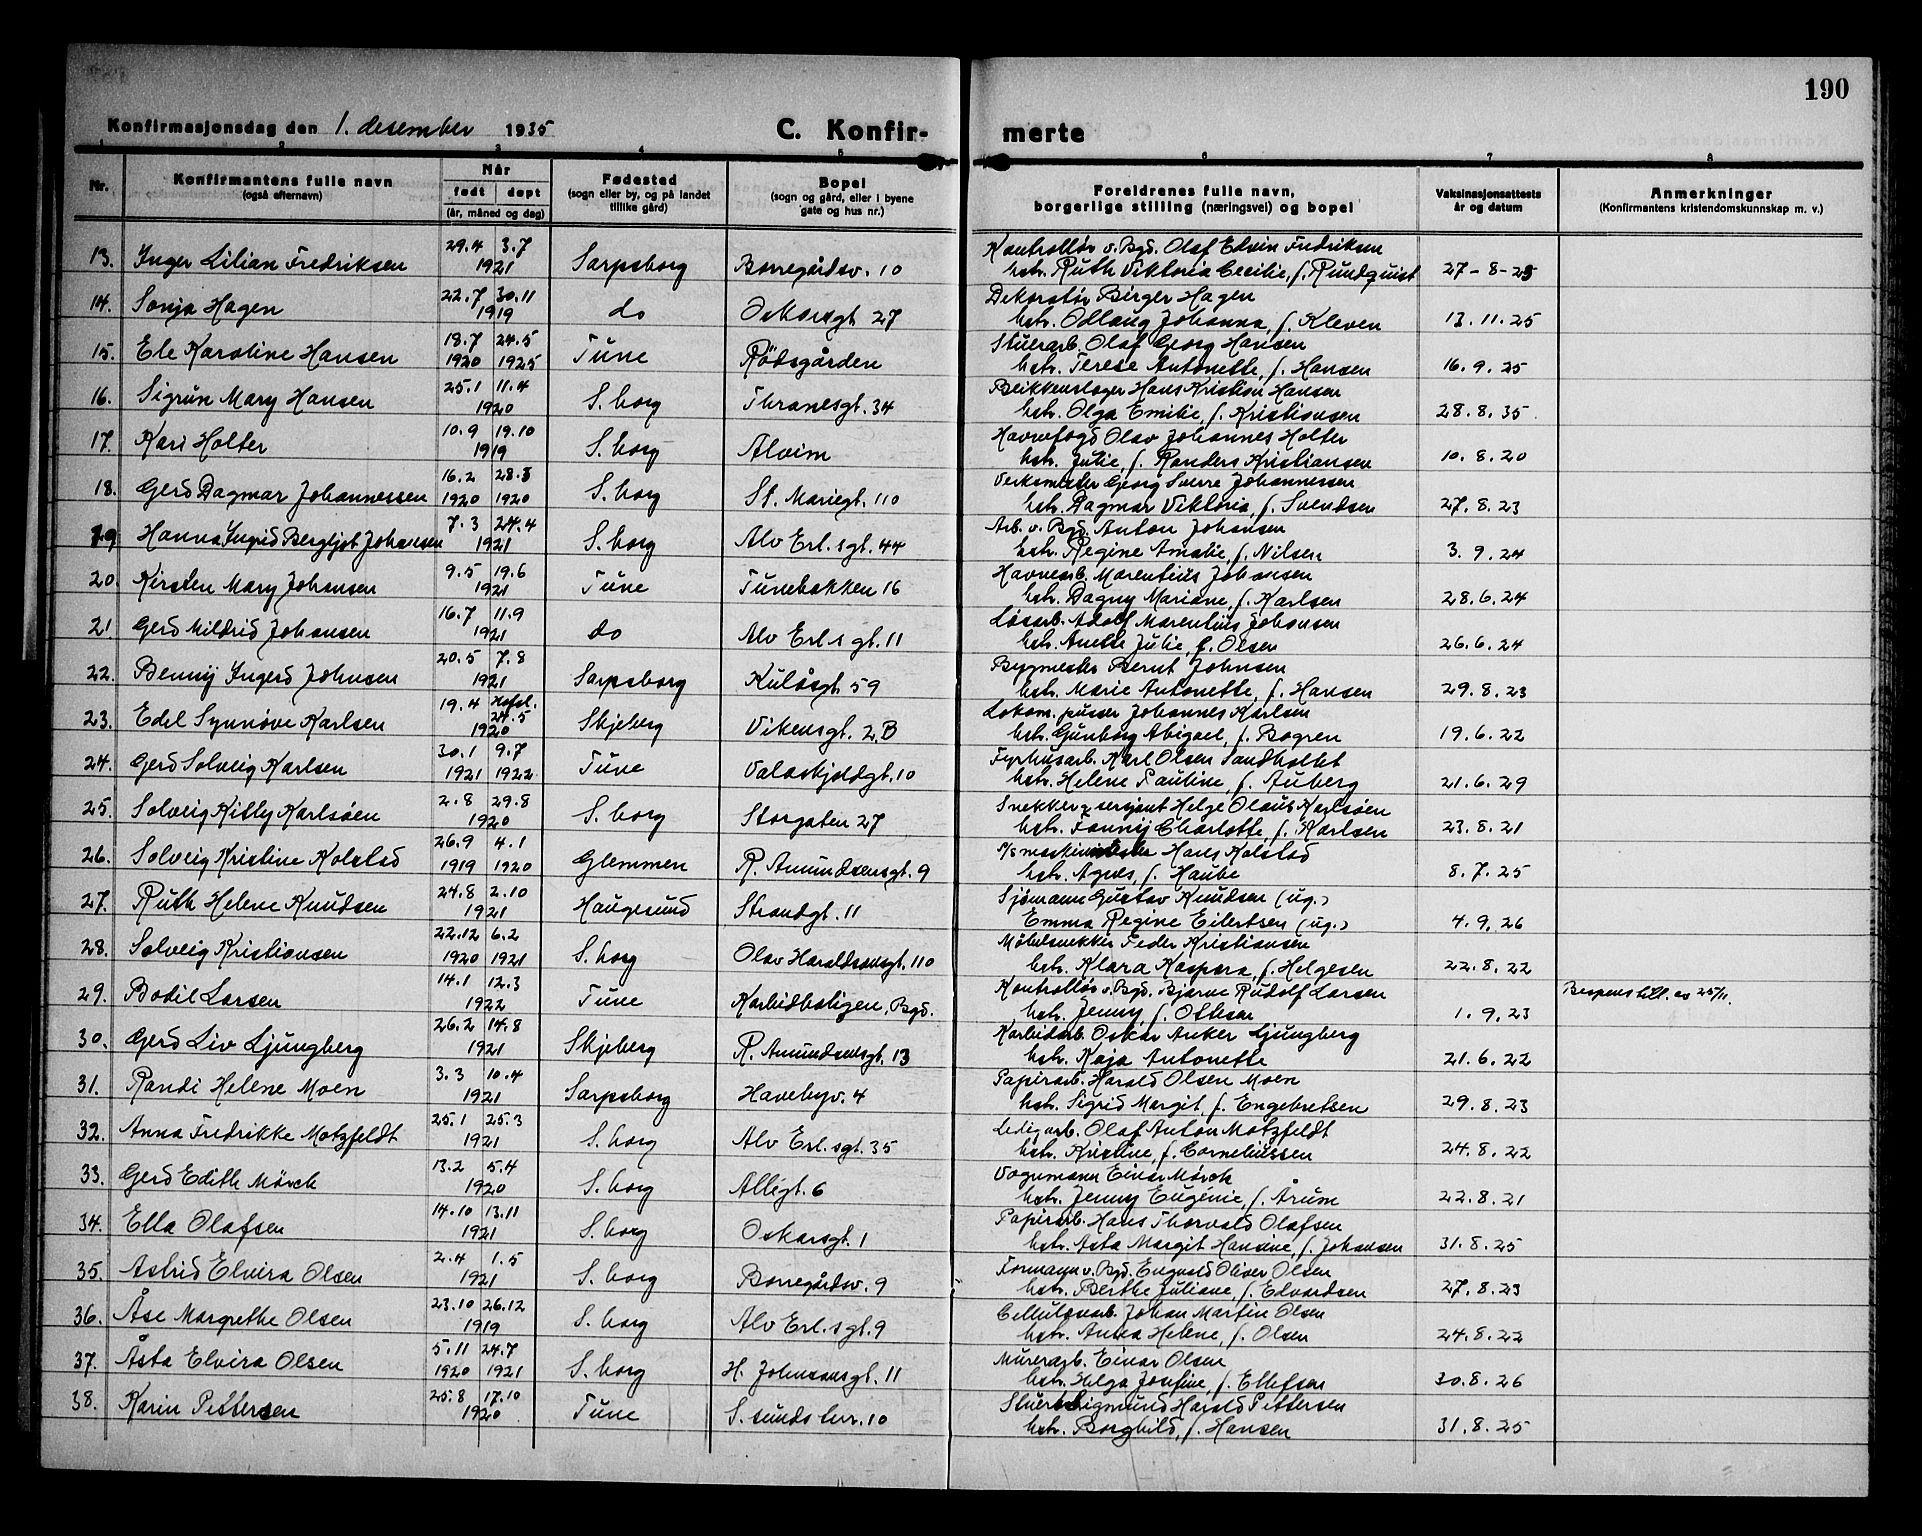 190
Konfirmasjonsdag den 1. desember 1935 C. Konfir- merte
1 2 3 4 5 6 7 8
Nr. Konfirmantens fulle navn (også efternavn) Når født døpt (år, måned og dag) Fødested (sogn eller by, og på landet tillike gård) Bopel (sogn og gård, eller i byene gate og hus nr.) Foreldrenes fulle navn, borgerlige stilling (næringsvei) og bopel Vaksinasjonsattests år og datum Anmerkninger (Konfirmantens kristendomskunnskap m. v.)
29.4 3.7 Kontrollør v. Bgd. Olaf Edvin Fredriksen
13. Inger Lilian Fredriksen 1921 Sarpsborg Borregårdsv. 10 hstr. Ruth Viktoria Cecilie, f. Rundquist 27-8-25
22.7 30.11 Dekoratør Birger Hagen
14. Sonja Hagen 1919 do Oskarsgt 27 hstr. Odlaug Johanna, f. Kleven 13.11.25
18.7 24.5 Stuerarb. Olaf Georg Hansen
15. Ele Karoline Hansen 1920 1925 Tune Rödsgården hstr. Terese Antonette, f. Hansen 16.9.25
25.1 11.4 Blikkenslager Hans Kristian Hansen
16. Sigrun Mary Hansen 1920 S.borg Thranesgt. 34 hstr. Olga Emilie, f. Kristiansen 28.8.35.
10.9 19.10 Havnefogd Olav Johannes Holter
17. Kari Holter 1919 S.borg Alvim hstr. Julie, f. Randers Kristiansen 10.8.20
16.2 28.3 Verksmester Georg Sverre Johannessen
18. Gerd Dagmar Johannessen 1920 1920 S.borg St. Mariegt. 110 hstr. Dagmar Viktoria, f. Svendsen 27.8.23
7.3 24.4 Arb. v. Bgd. Anton Johansen
19 Hanna Ingrid Bergljot Johansen 1921 S.borg Alv Erl.sgt. 44 hstr. Regine Amalie, f. Nilsen 3.9.24
9.5 19.6 Havnearb. Marentius Johansen
20. Kirsten Mary Johansen 1921 Tune Tunebakken 16 hstr. Dagny Mariane, f. Karlsen 28.6.24
16.7 11.9 Løsarb. Adolf Marentius Johansen
21 Gerd Mildrid Johansen 1921 do Alv Erl.sgt. 11 hstr. Anette Julie, f. Olsen 26.6.24
20.5 7.8 Bygmester Bernt Johnsen
22. Benny Ingerd Johnsen 1921 Sarpsborg Kulåsgt. 59 hstr. Marie Antonette, f. Hansen 29.8.23
19.4 24.5 Lokom.pusser Johannes Karlsen
23. Edel Synnöve Karlsen 1920 Skjeberg Vikensgt. 2.B hstr. Gunborg Abigael, f. Bogren 19.6.22
30.1 9.7 Fyrhusarb. Karl Olsen Sandholtet
24. Gerd Solveig Karlsen 1921 1922 Tune Valaskjoldgt. 10 hstr. Helene Pauline, f. Auberg 21.6.29
2.8 29.8 Snekker & sersjant Helge Olaus Karlsøen
25. Solveig Kitty Karlsöen 1920 S.borg Storgaten 27 hstr. Fanny Charlotte, f. Karlsen 23.8.21
26.9 4.1 Hans Kolstad
26. Solveig Kristine Kolstad 1919 1920 Glemmen R. Amundsensgt. 9 hstr. Agnes, f. Haube 8.7.25
24.8 2.10 Sjømann Gustav Knudsen (ug.)
27. Ruth Helene Knudsen 1921 Haugesund Strandgt. 11 Emma Regine Eilertsen (ug.) 4.9.26
22.12 6.2 Möbelsnekker Peder Kristiansen
28. Solveig Kristiansen 1920 1921 S.borg Olav Haraldsønsgt. 110 hstr. Klara Kaspara, f. Helgesen 22.8.22
14.1 12.3 Kontrollør v. Bgd. Bjarne Rudolf Larsen
29. Bodil Larsen 1922 Tune Karbidboligen, Bgd. hstr. Jenny f. Olsen 1.9.23 Bispens till. av 25/11.
26.2 14.8 Karbidarb. Oskar Anker Ljungberg
30. Gerd Liv Ljungberg 1921 Skjeberg R. Amundsensgt. 13 hstr. Kaja Antonette 21.6.22
3.3 10.4 Papirarb. Harald Olsen Moen
31. Randi Helene Moen 1921 Sarpsborg Havebyv. 4 hstr. Sigrid Margit, f. Engebretsen 29.8.23
25.1 25.3 Ledigarb. Olaf Anton Motzfeldt
32. Anna Fredrikke Motzfeldt 1921 S.borg Alv Erl.sgt. 35 hstr. Kristine, f. Corneliussen 24.8.22
13.2 5.4 Vognmann Einar Mörch
33. Gerd Edith Mörch 1920 S.borg Allégt. 6 hstr. Jenny Eugénie, f. Årum 22.8.21
14.10 13.11 Papirarb. Hans Thorvald Olafsen
34. Ella Olafsen 1921 S.borg Oskarsgt. 1 hstr. Asta Margit Hansine, f. Johansen 31.8.25
2.4 1.5 Formann v. Bgd. Engvald Oliser Olsen
35. Astrid Elvira Olsen 1921 S.borg Borregårdsv. 9 hstr. Berthe Juliane, f. Edvardsen 27.8.23
23.10 26.12 Cellulosearb. Johan Martin Olsen
36. Åse Margrethe Olsen 1919 S.borg Alv Erl.sgt. 9 hstr. Anna Helene, f. Olsen 24.8.22
5.11 24.7 Murerarb. Einar Olsen
37. Åsta Elvira Olsen 1920 1921 S.borg H. Johnsonsgt. 11 hstr. Helga Josefine, f. Ellefsen 30.8.26
25.8 17.10 Sigmund Harald Pettersen
38. Karin Pettersen 1920 Tune S. sundslvr. 10 hstr. Borghild, f. Hansen 31.8.25